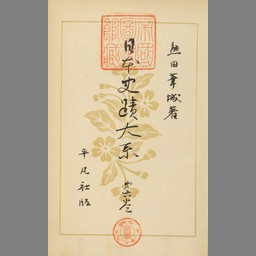 熊田葦城著
日本史蹟大系
第六巻
平凡社版